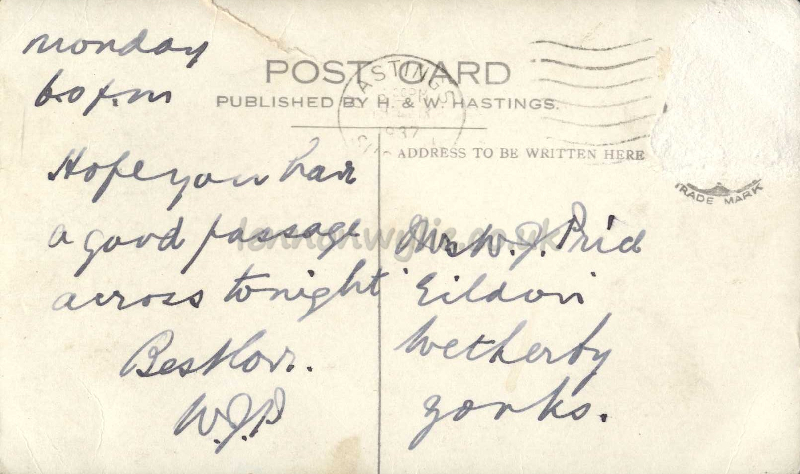 monday
6.0 p.m
POST CARD
PUBLISHED BY H. & W. HASTINGS.
HASTINGS
1937
ADDRESS TO BE WRITTEN HERE
TRADE MARK
Hope you have
a good passage
across tonight
Best love.
W.J.P
Mrs W. J. Prid
Eildon
Wetherby
Yorks.